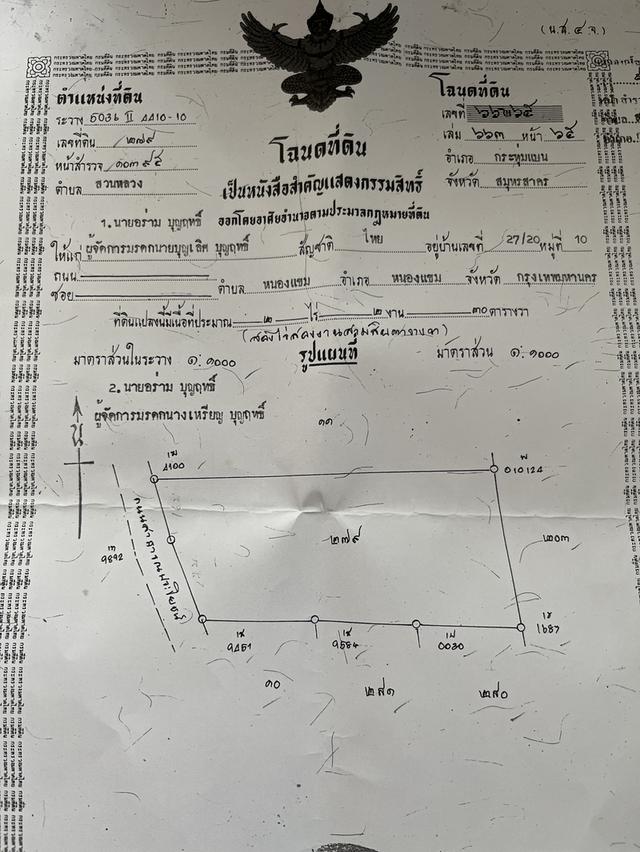 (น.ส.๔ จ.)
ตำแหน่งที่ดิน
ระวาง 5036 II 4410-10
เลขที่ดิน ๒๗๙
หน้าสำรวจ ๑๐๓๙๕
ตำบล สวนหลวง
โฉนดที่ดิน
เลขที่
เล่ม ๖๖๓ หน้า ๖๕
อำเภอ กระทุ่มแบน
จังหวัด สมุทรสาคร
โฉนดที่ดิน
เป็นหนังสือสำคัญแสดงกรรมสิทธิ์
ออกโดยอาศัยอำนาจตามประมวลกฎหมายที่ดิน
1. นายอร่าม บุญฤทธิ์
ให้แก่ ผู้จัดการมรดกนายบุญเลิศ บุญฤทธิ์ สัญชาติ ไทย อยู่บ้านเลขที่ 27/20 หมู่ที่ 10
ถนน
ซอย ตำบล หนองแขม อำเภอ หนองแขม จังหวัด กรุงเทพมหานคร
ที่ดินแปลงนี้มีเนื้อที่ประมาณ ๒ ไร่ ๒ งาน ๓๐ ตารางวา
(สองไร่สองงานสามสิบตารางวา)
มาตราส่วนในระวาง ๑:๑๐๐๐ รูปแผนที่ มาตราส่วน ๑:๑๐๐๐
2. นายอร่าม บุญฤทธิ์
ผู้จัดการมรดกนางเหรียญ บุญฤทธิ์
น
๑๑
4100
010124
๒๗๙
๒๐๓
9842
9451
9584
0030
1687
๑๐
๒๘๑
๒๘๐